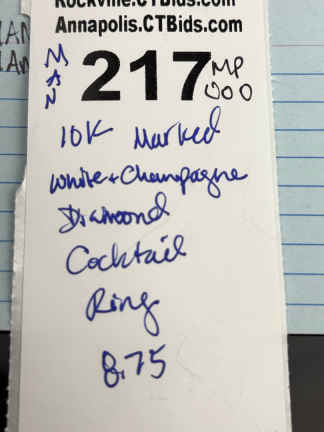 Rockville.CTBids.com
Annapolis.CTBids.com
MAN
217
MP
000
10K Marked
White + Champagne
Diamond
Cocktail
Ring
8.75